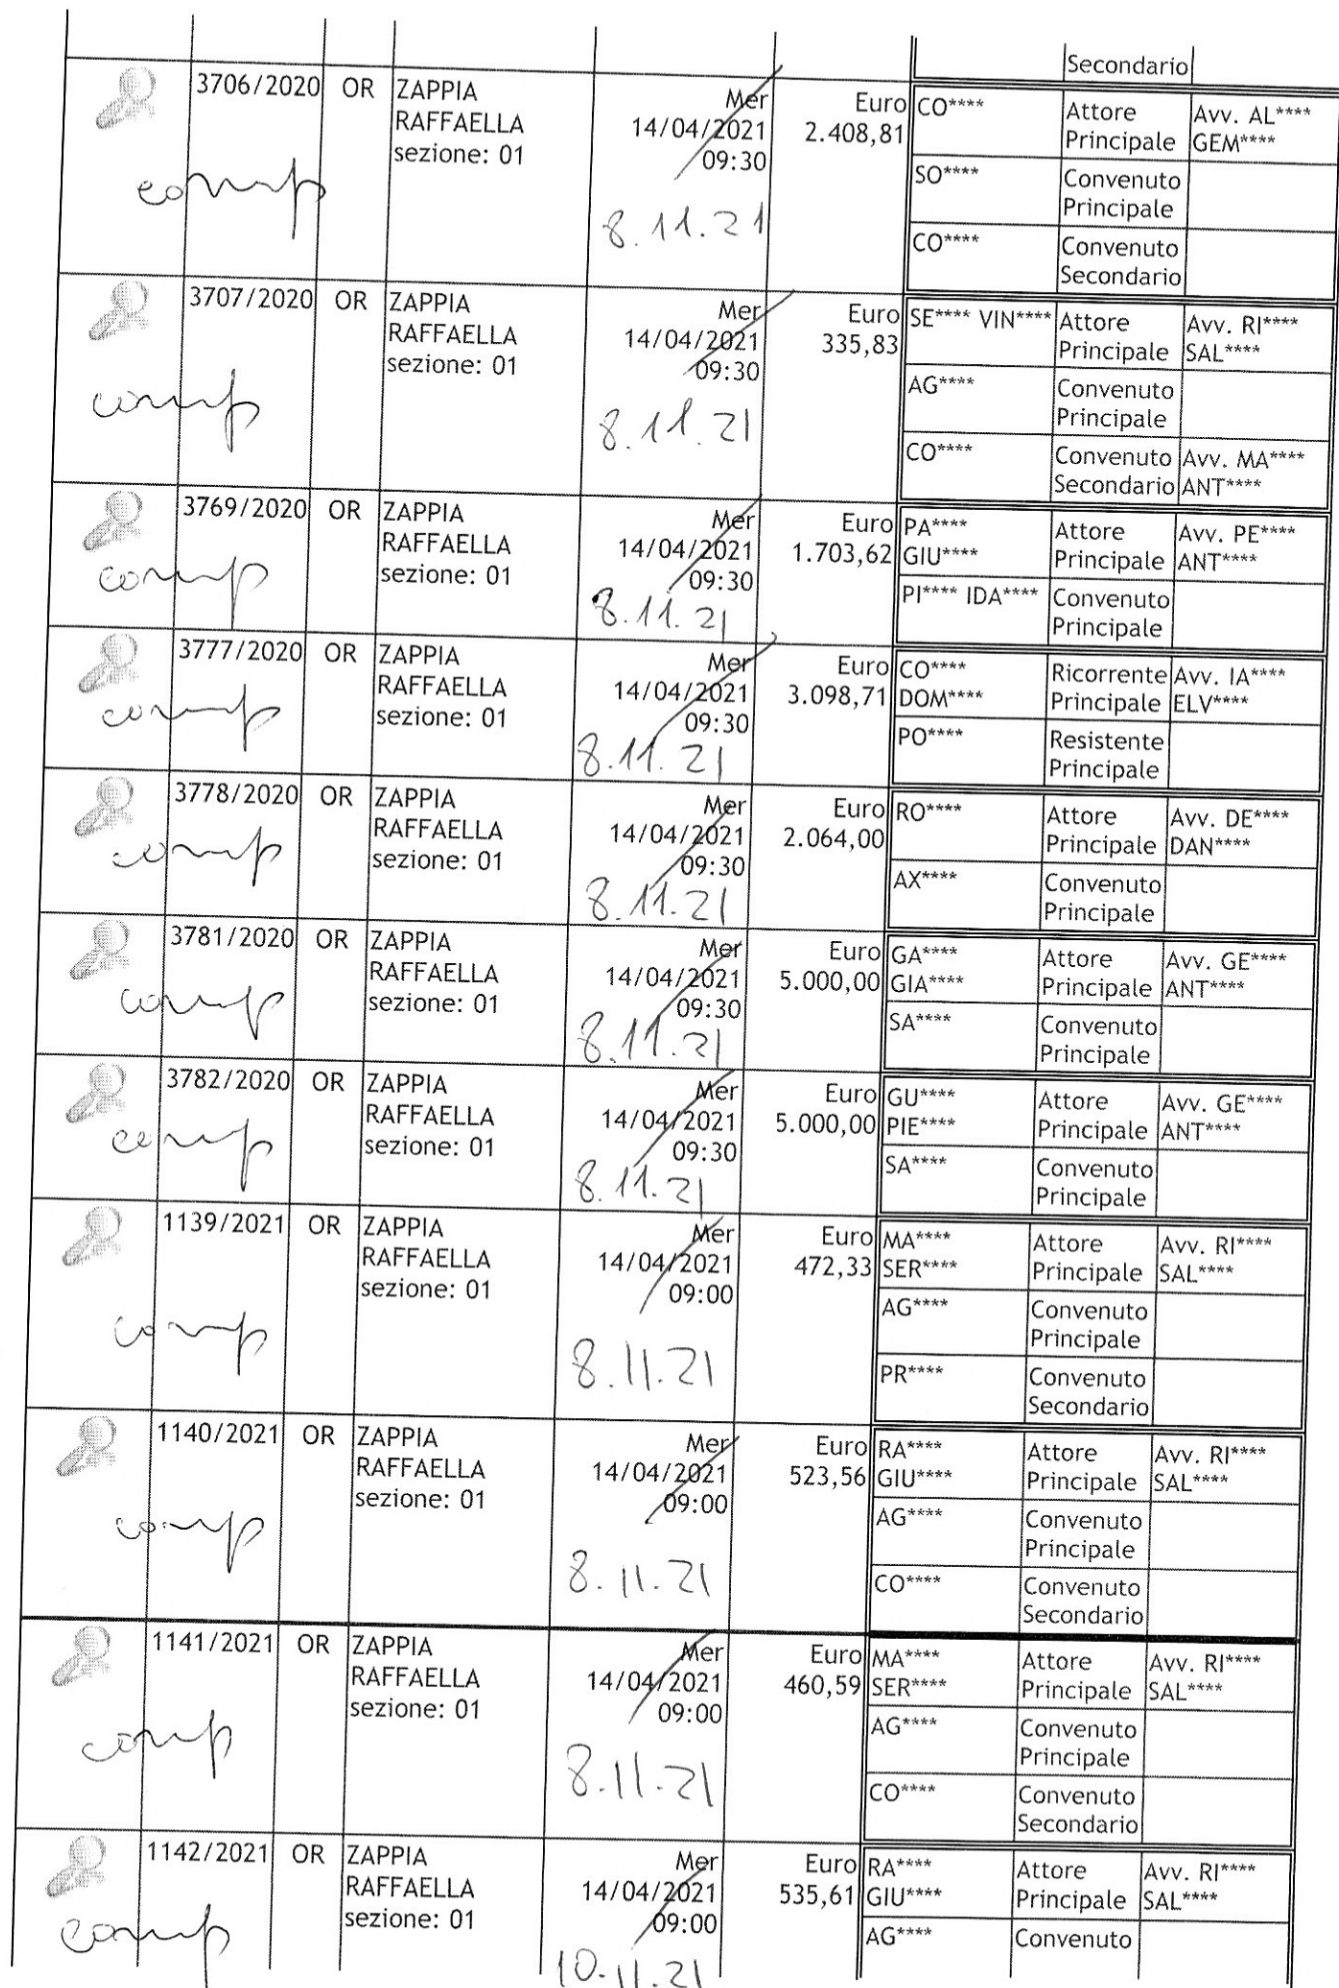 Secondario
3706/2020 OR ZAPPIA RAFFAELLA sezione: 01 Mer 14/04/2021 09:30 Euro 2.408,81
comp 8.11.21
CO**** Attore Principale Avv. AL**** GEM****
SO**** Convenuto Principale
CO**** Convenuto Secondario
3707/2020 OR ZAPPIA RAFFAELLA sezione: 01 Mer 14/04/2021 09:30 Euro 335,83
comp 8.11.21
SE**** VIN**** Attore Principale Avv. RI**** SAL****
AG**** Convenuto Principale
CO**** Convenuto Secondario Avv. MA**** ANT****
3769/2020 OR ZAPPIA RAFFAELLA sezione: 01 Mer 14/04/2021 09:30 Euro 1.703,62
comp 8.11.21
PA**** GIU**** Attore Principale Avv. PE**** ANT****
PI**** IDA**** Convenuto Principale
3777/2020 OR ZAPPIA RAFFAELLA sezione: 01 Mer 14/04/2021 09:30 Euro 3.098,71
comp 8.11.21
CO**** DOM**** Ricorrente Principale Avv. IA**** ELV****
PO**** Resistente Principale
3778/2020 OR ZAPPIA RAFFAELLA sezione: 01 Mer 14/04/2021 09:30 Euro 2.064,00
comp 8.11.21
RO**** Attore Principale Avv. DE**** DAN****
AX**** Convenuto Principale
3781/2020 OR ZAPPIA RAFFAELLA sezione: 01 Mer 14/04/2021 09:30 Euro 5.000,00
comp 8.11.21
GA**** GIA**** Attore Principale Avv. GE**** ANT****
SA**** Convenuto Principale
3782/2020 OR ZAPPIA RAFFAELLA sezione: 01 Mer 14/04/2021 09:30 Euro 5.000,00
comp 8.11.21
GU**** PIE**** Attore Principale Avv. GE**** ANT****
SA**** Convenuto Principale
1139/2021 OR ZAPPIA RAFFAELLA sezione: 01 Mer 14/04/2021 09:00 Euro 472,33
comp 8.11.21
MA**** SER**** Attore Principale Avv. RI**** SAL****
AG**** Convenuto Principale
PR**** Convenuto Secondario
1140/2021 OR ZAPPIA RAFFAELLA sezione: 01 Mer 14/04/2021 09:00 Euro 523,56
comp 8.11.21
RA**** GIU**** Attore Principale Avv. RI**** SAL****
AG**** Convenuto Principale
CO**** Convenuto Secondario
1141/2021 OR ZAPPIA RAFFAELLA sezione: 01 Mer 14/04/2021 09:00 Euro 460,59
comp 8.11.21
MA**** SER**** Attore Principale Avv. RI**** SAL****
AG**** Convenuto Principale
CO**** Convenuto Secondario
1142/2021 OR ZAPPIA RAFFAELLA sezione: 01 Mer 14/04/2021 09:00 Euro 535,61
comp 10.11.21
RA**** GIU**** Attore Principale Avv. RI**** SAL****
AG**** Convenuto